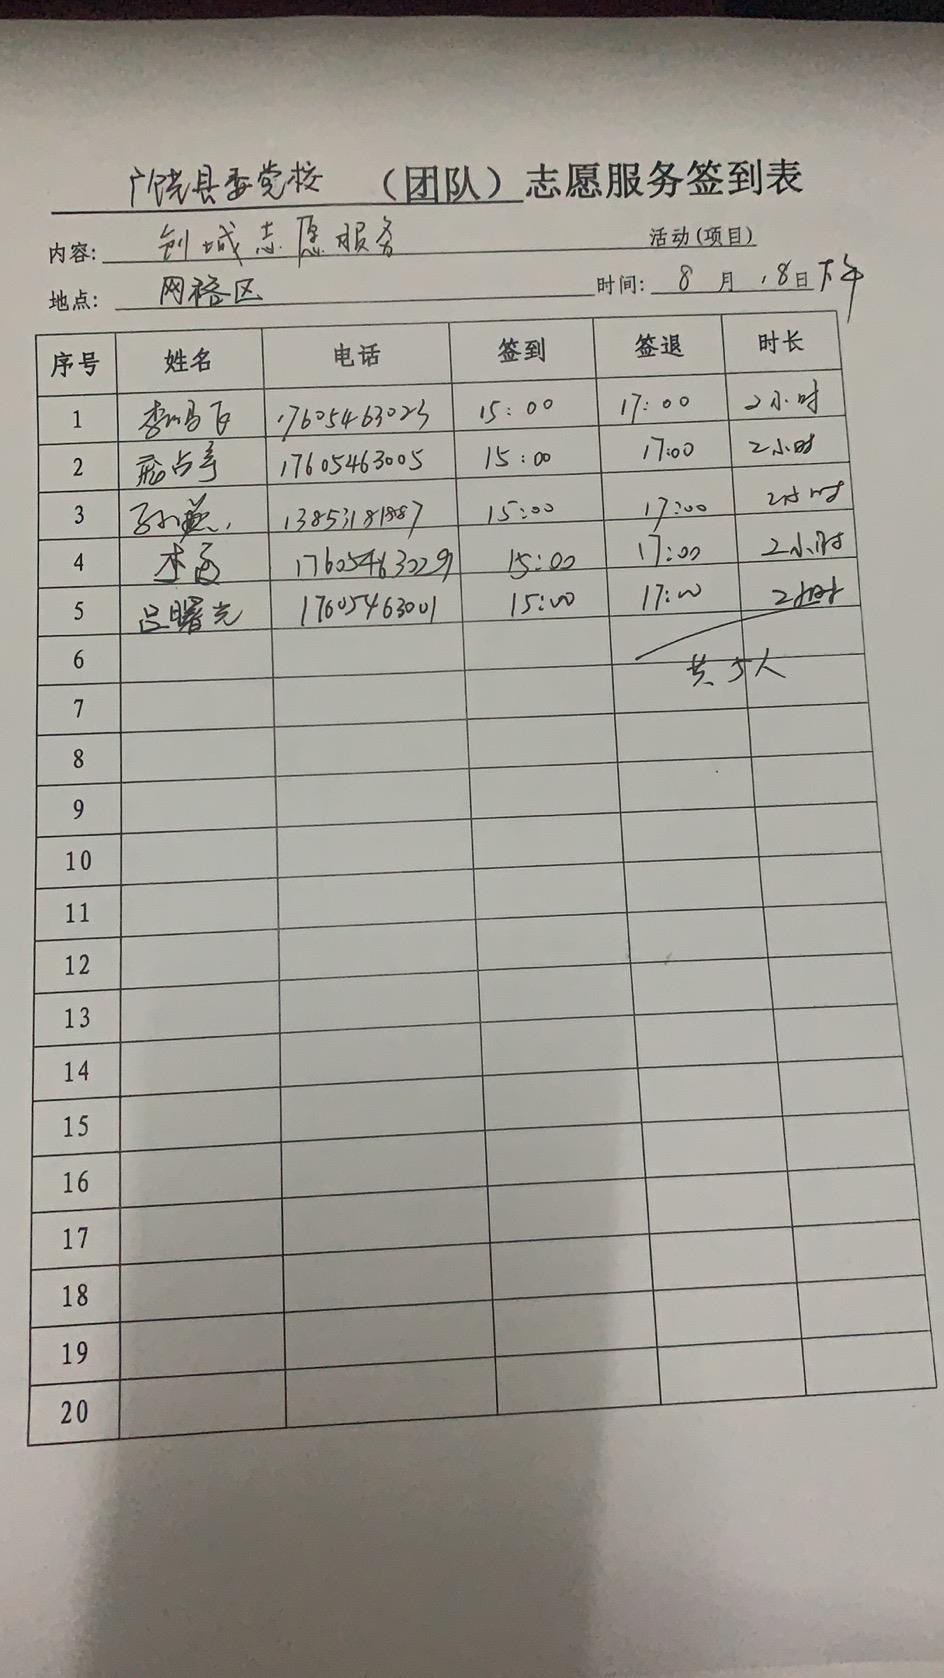 广饶县委党校（团队）志愿服务签到表
内容: 创城志愿服务 活动(项目)
地点: 网格区 时间: 8月18日下午
序号 姓名 电话 签到 签退 时长
1 17605463023 15:00 17:00 2小时
2 17605463005 15:00 17:00 2小时
3 13853181887 15:00 17:00 2小时
4 17605463029 15:00 17:00 2小时
5 吕曙光 17605463001 15:00 17:00 2小时
6 共5人
7
8
9
10
11
12
13
14
15
16
17
18
19
20